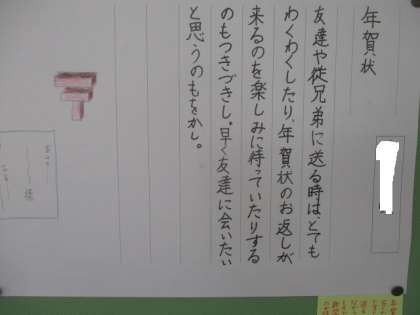 年賀状
友達や従兄弟に送る時は、とても
わくわくしたり、年賀状のお返しが
来るのを楽しみに待っていたりする
のもつきづきし。早く友達に会いたい
と思うのもをかし。
〒
様